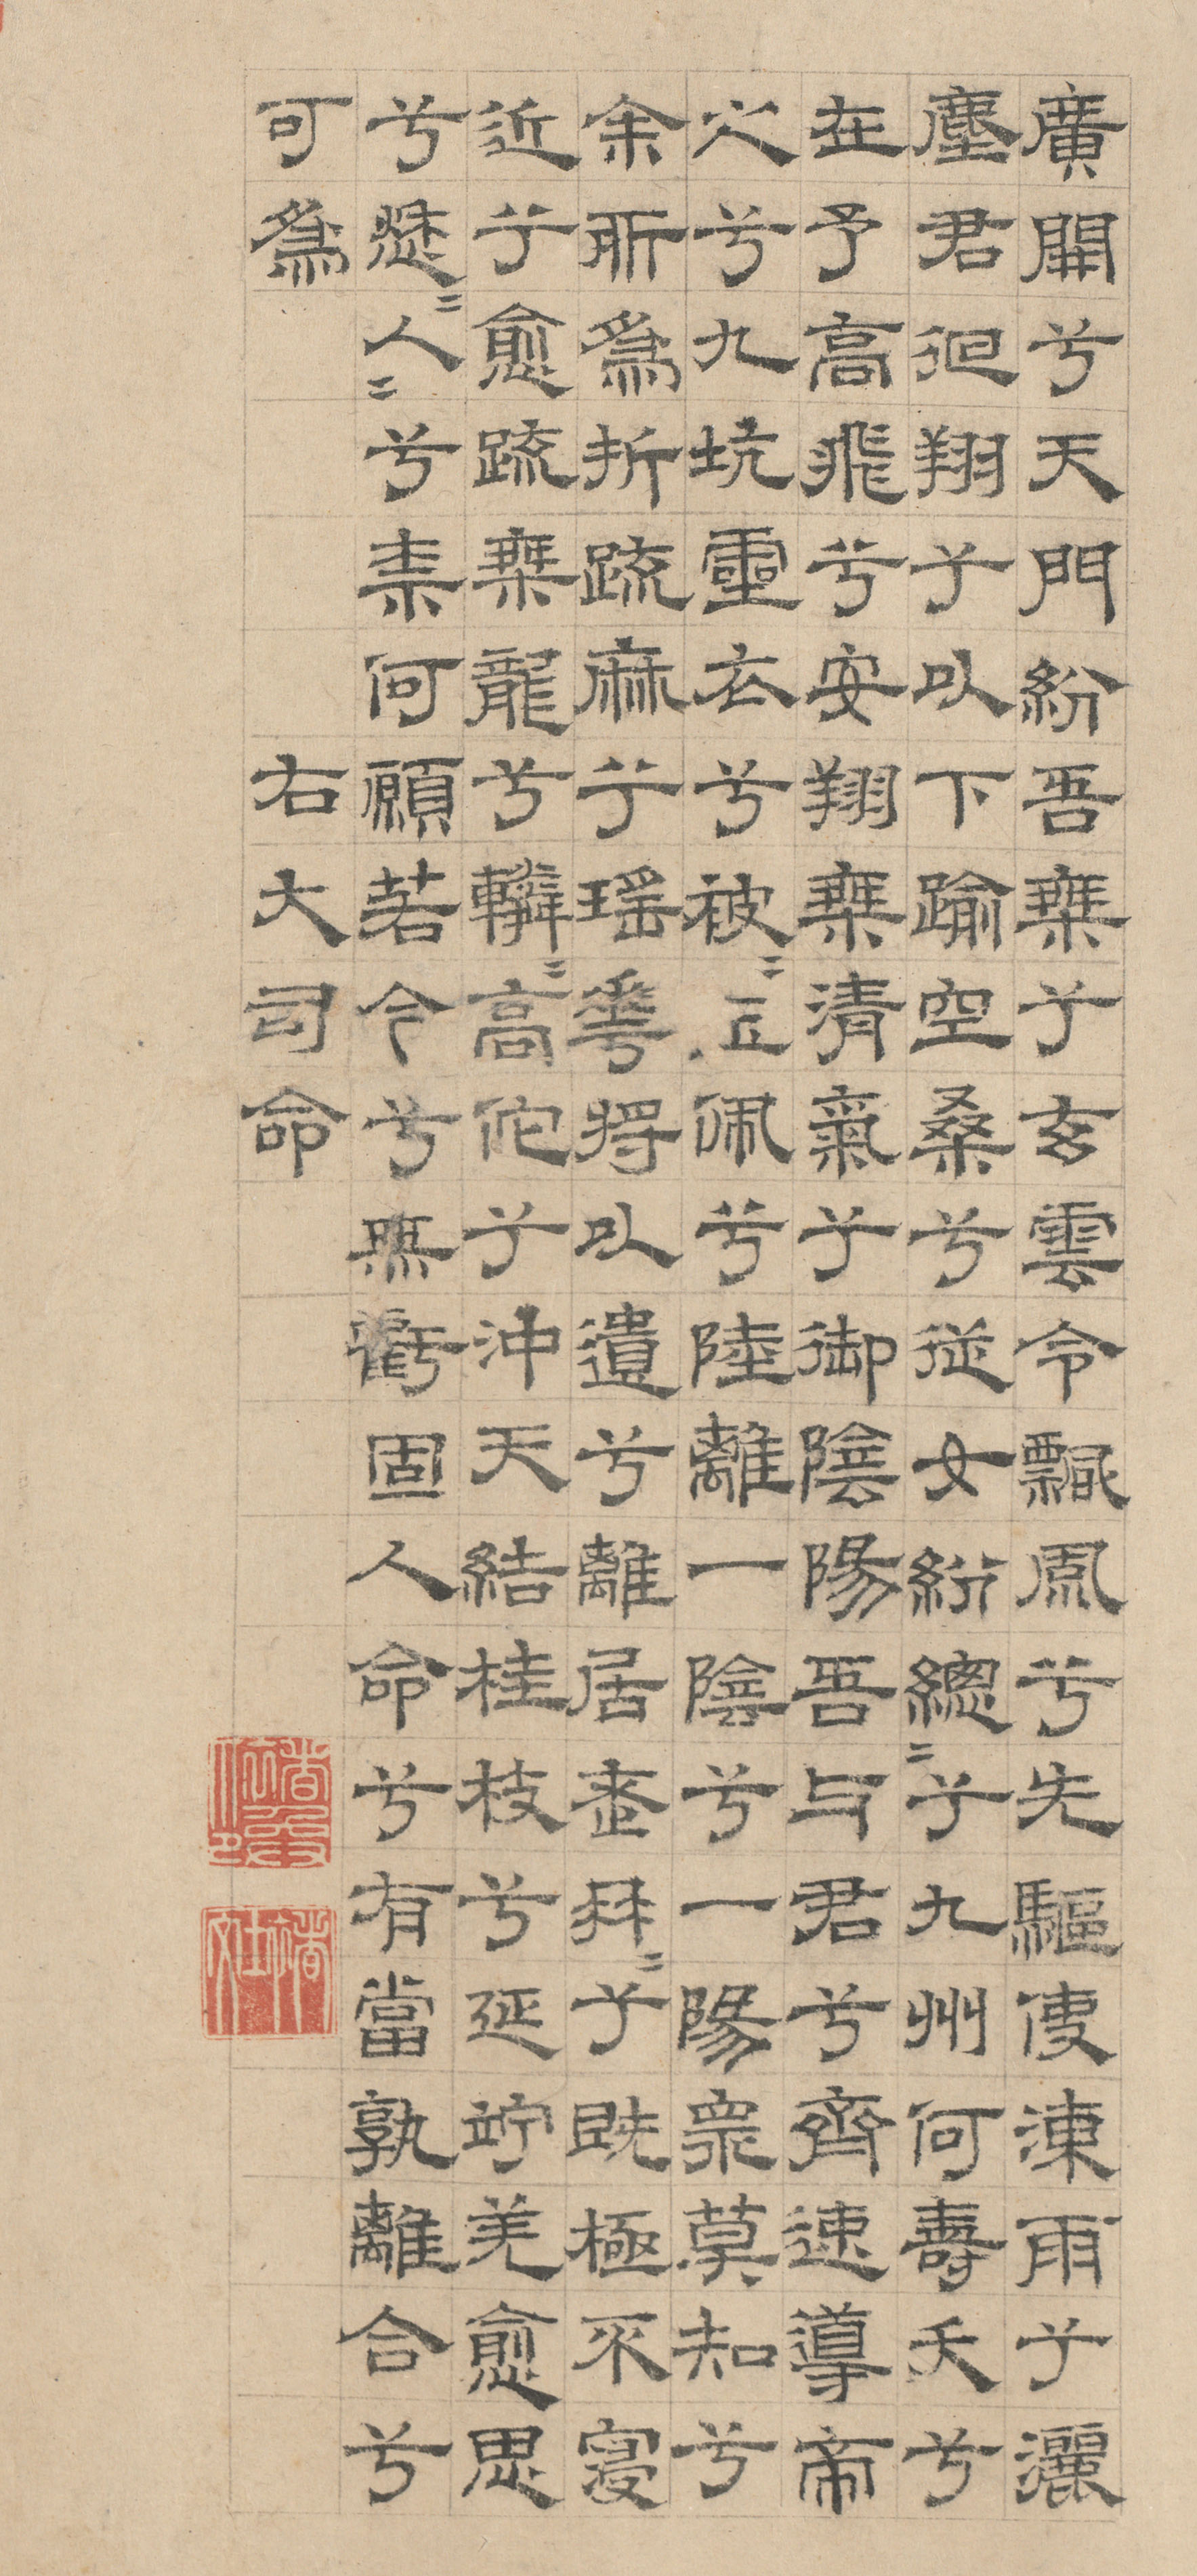 廣開兮天門紛吾椉兮玄雲令飄風兮先驅使涷雨兮灑
塵君徊翔兮以下踰空桑兮從女紛總〻兮九州何壽夭兮
在予高飛兮安翔椉清氣兮御陰陽吾与君兮齊速導帝
之兮九坑靈衣兮被〻玉佩兮陸離一陰兮一陽衆莫知兮
余所爲折疏麻兮瑤華將以遺兮離居老冉〻兮既極不寖
近兮愈疏椉龍兮轔〻高佗兮沖天結桂枝兮延竚羌愈思
兮愁〻人〻兮柰何願若今兮無虧固人命兮有當孰離合兮
可爲　右大司命